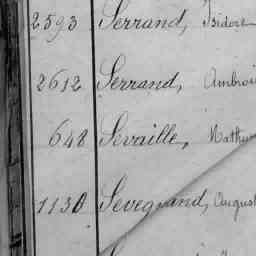 2593 Serrand, Isidore
2612 Serrand, Ambroi
648 Sévaille, Mathur
1130 Sevegrand, August